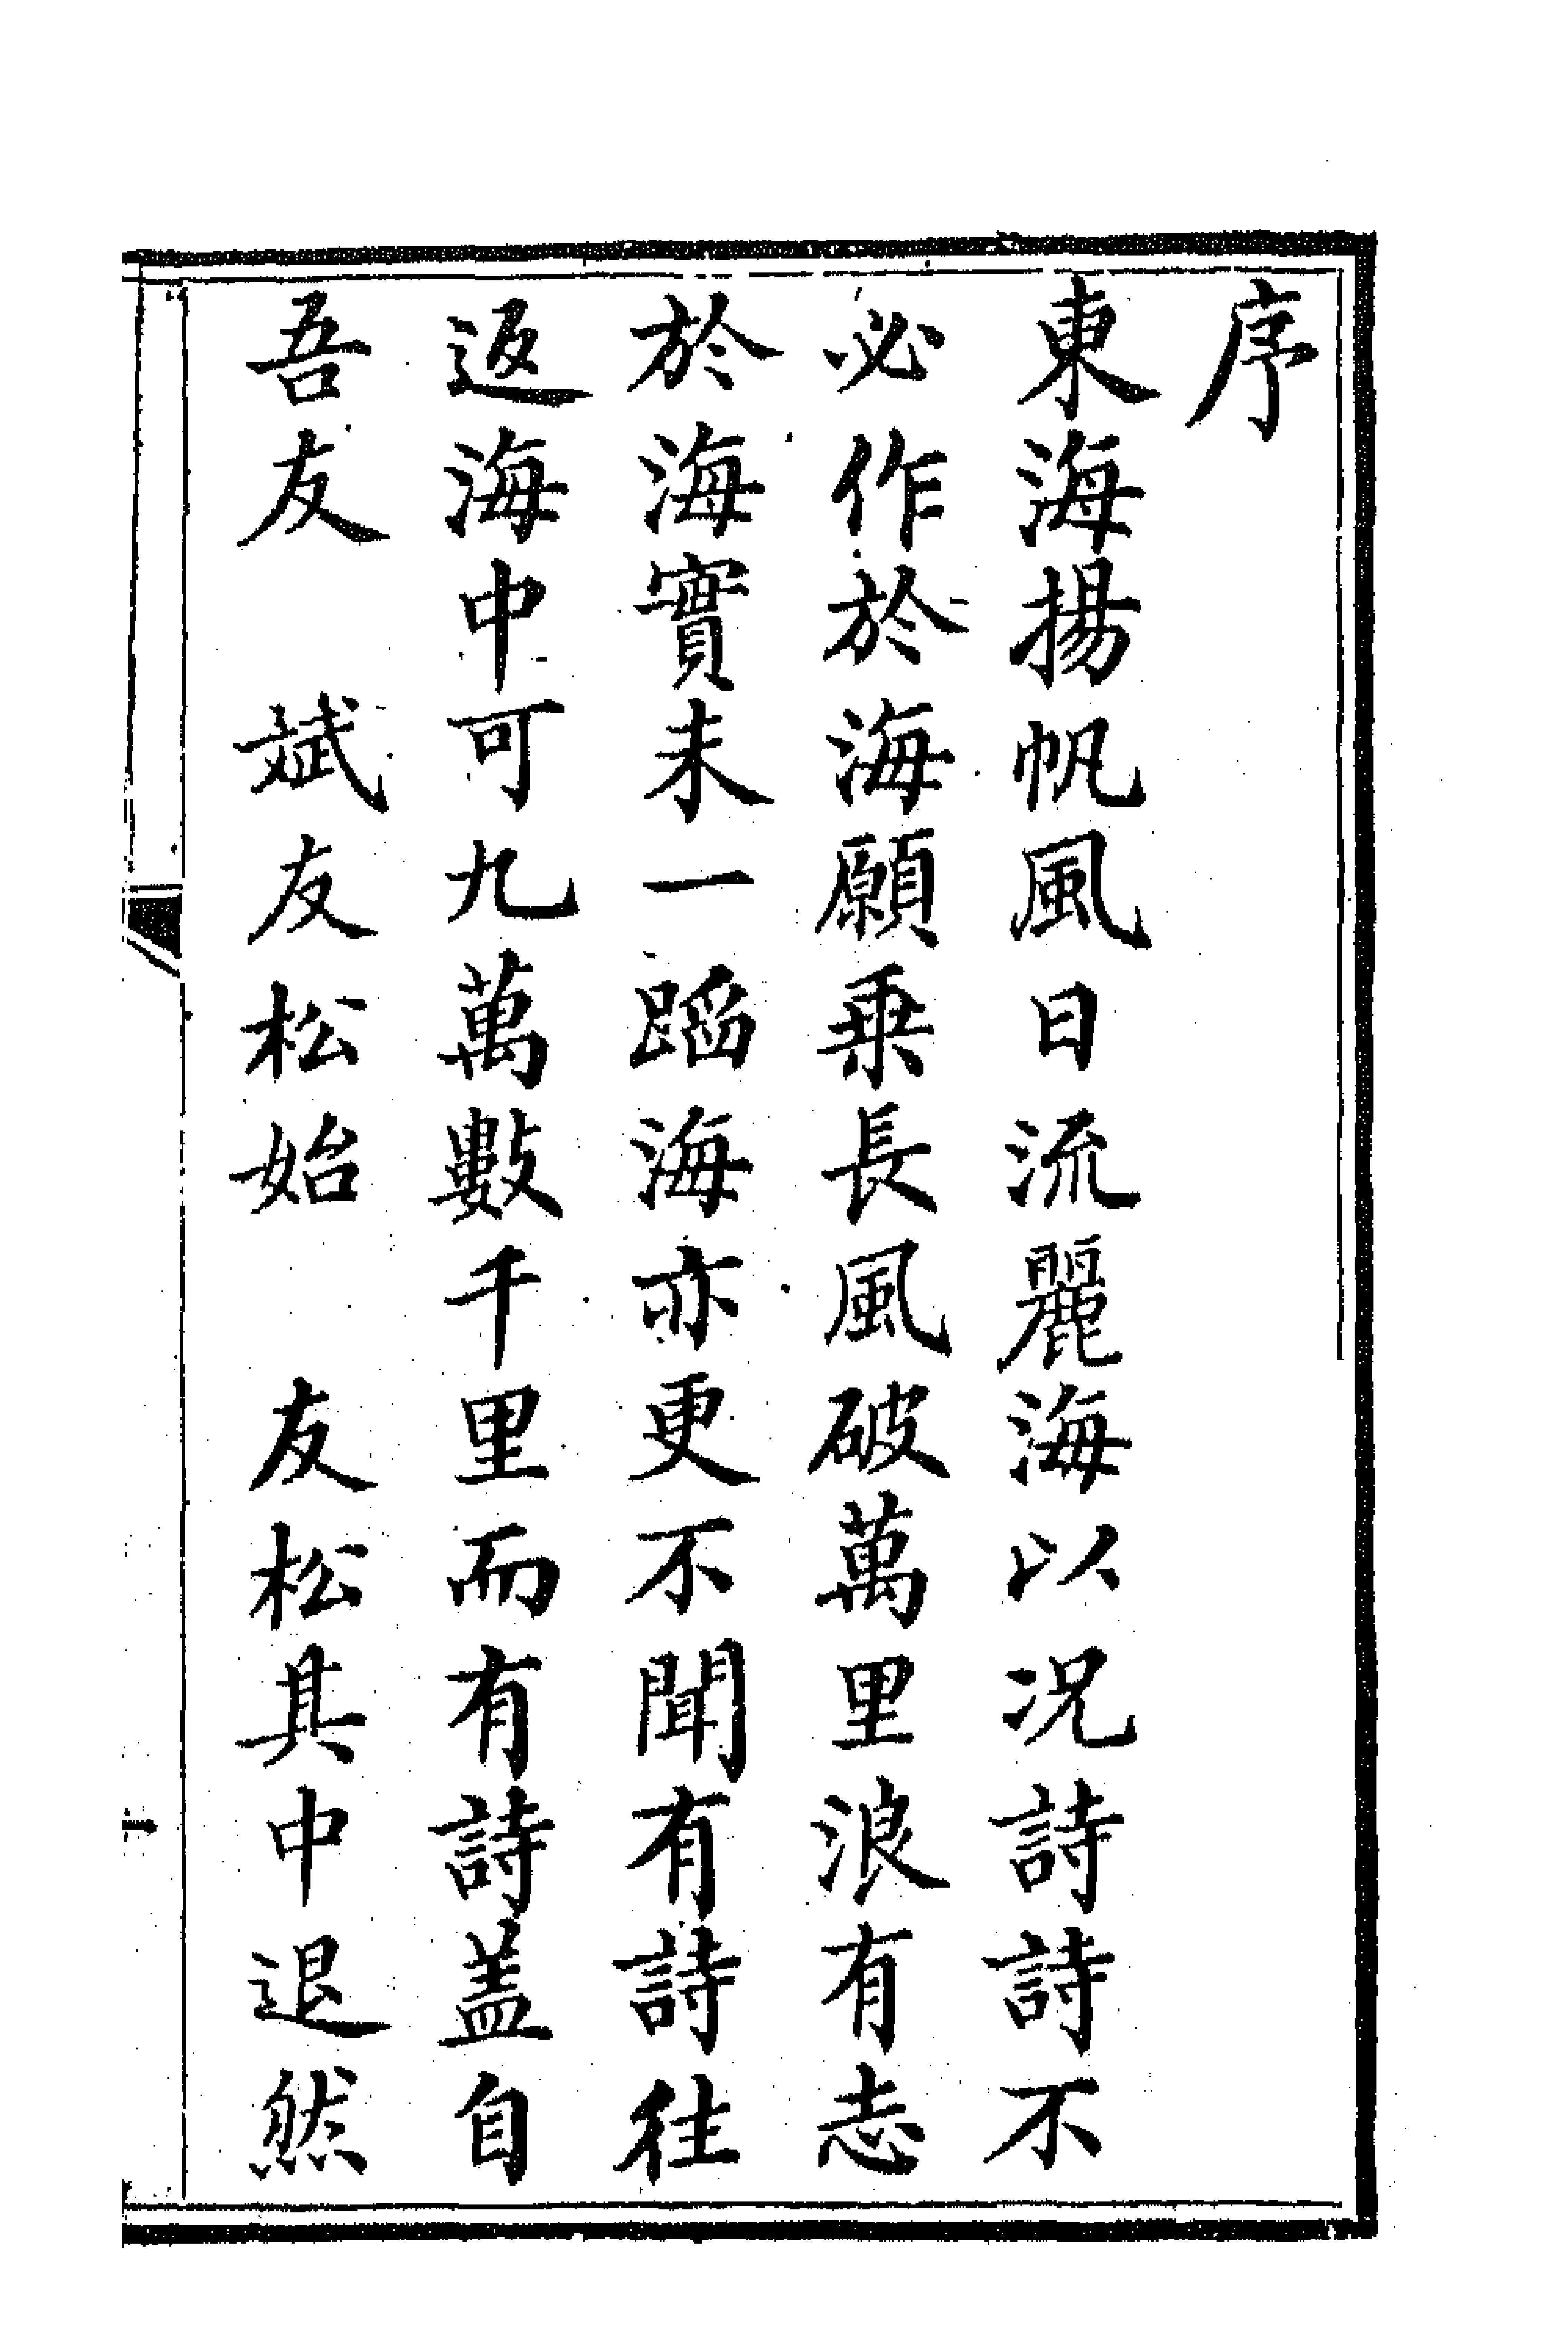 序
東海揚帆風日流麗海以况詩詩不
必作於海願乗長風破萬里浪有志
於海實未一蹈海亦更不聞有詩往
返海中可九萬數千里而有詩盖自
吾友　斌友松始　友松其中退然